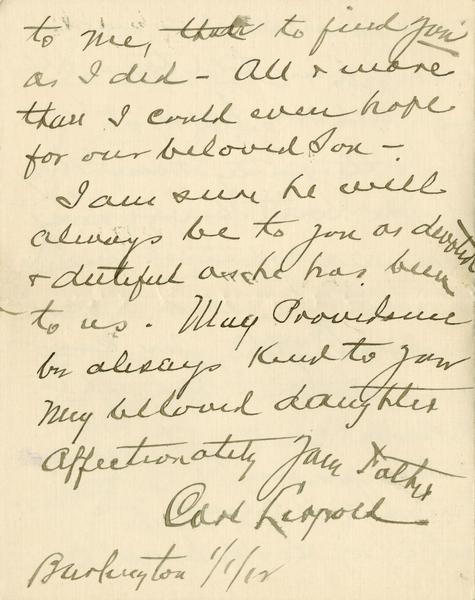 to me, that to find you
as I did - All & more
than I could even hope
for our beloved Son -.
I am sure he will
always be to you as devoted
& dutiful as he has been
to us. May Providence
be always Kind to you
My beloved daughter
Affectionately Your Father
Carl Leopold
Burlington 1/1/12